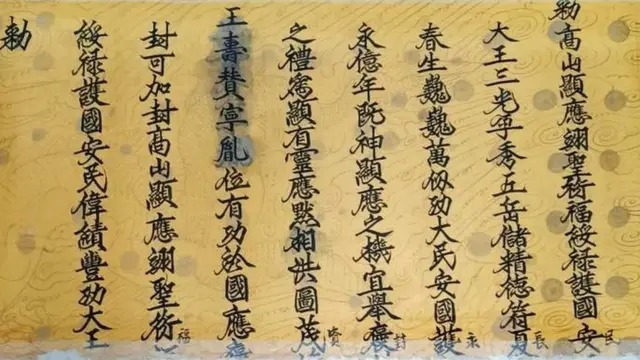 勅高山顯應翊聖衍福綏祿護國安民
大王三光孕秀五岳儲精德符長
春生巍巍萬仭功大民安國護永
永億年既神顯應之機宜舉褒封
之禮寫顯有靈應黙相洪圖茂賢
王壽賛寧胤位有功於國應
封可加封高山顯應翊聖衍福
綏祿護國安民偉績豊功大王
勅